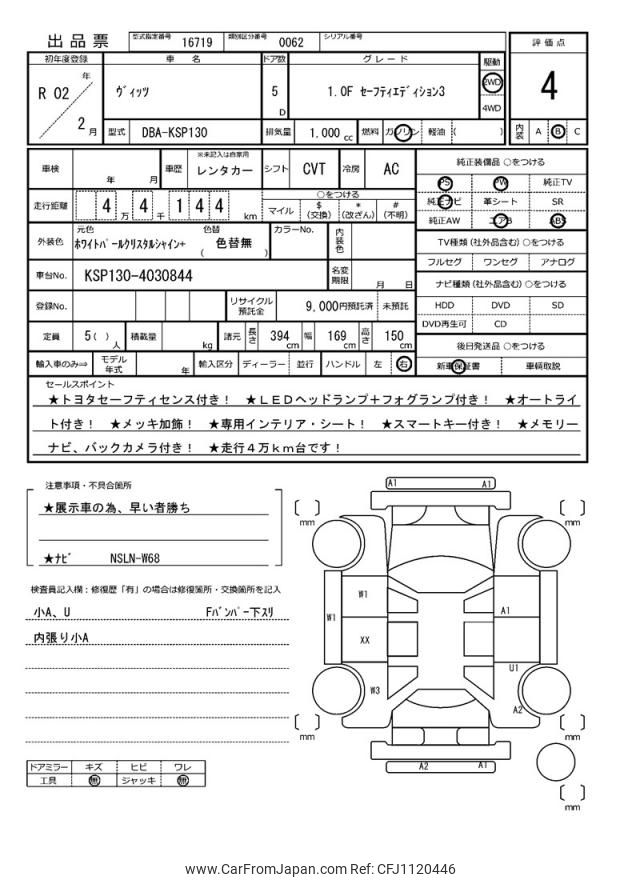 出品票 型式指定番号 16719 類別区分番号 0062 シリアル番号
初年度登録 車名 ドア数 グレード 駆動 評価点
R 02 年 2 月 ヴィッツ 5 D 1.0F セーフティエディション3 2WD 4WD 4
型式 DBA-KSP130 排気量 1.000 cc 燃料 ガソリン 軽油 ( ) 内装 A B C
車検 年 月 車歴 ※未記入は自家用 レンタカー シフト CVT 冷房 AC 純正装備品 ○をつける
PS PW 純正TV
走行距離 4 万 4 千 1 4 4 km ○をつける マイル $ (交換) * (改ざん) # (不明) 純正ナビ 革シート SR
純正AW エアB ABS
外装色 元色 ホワイトパールクリスタルシャイン+ 色替 ( 色替無 ) カラーNo. 内装色 TV種類 (社外品含む) ○をつける
フルセグ ワンセグ アナログ
車台No. KSP130-4030844 名変期限 月 日 ナビ種類 (社外品含む) ○をつける
登録No. リサイクル預託金 9,000円預託済 未預託 HDD DVD SD
DVD再生可 CD
定員 5( ) 人 積載量 kg 諸元 長さ 394 cm 幅 169 cm 高さ 150 cm 後日発送品 ○をつける
輸入車のみ⇨ モデル年式 年 輸入区分 ディーラー 並行 ハンドル 左 右 新車保証書 車輌取説
セールスポイント
★トヨタセーフティセンス付き! ★LEDヘッドランプ+フォグランプ付き! ★オートライ
ト付き! ★メッキ加飾! ★専用インテリア・シート! ★スマートキー付き! ★メモリー
ナビ、バックカメラ付き! ★走行4万km台です!
注意事項・不具合箇所
★展示車の為、早い者勝ち
★ナビ NSLN-W68
検査員記入欄:修復歴「有」の場合は修復箇所・交換箇所を記入
小A、U Fバンパー下スリ
内張り小A
ドアミラー キズ ヒビ ワレ
工具 無 ジャッキ 無
A1 A1
mm mm
W1 A1
W1
XX
U1
W3
A2
mm mm
A2 A1
mm
www.CarFromJapan.com Ref: CFJ1120446